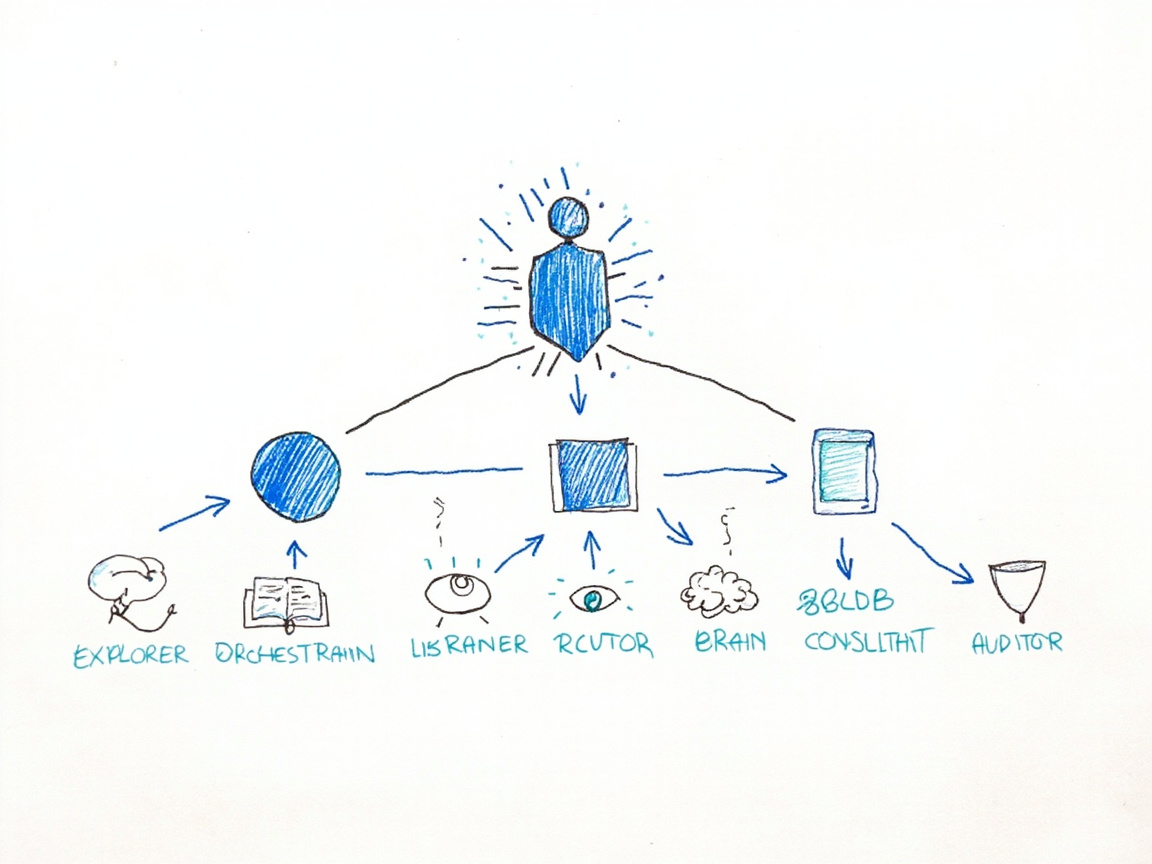 EXPLORER
ORCHESTRAIIN
LIBRANER
RCUTOR
BRAIN
CONSLITHIT
AUDITOR